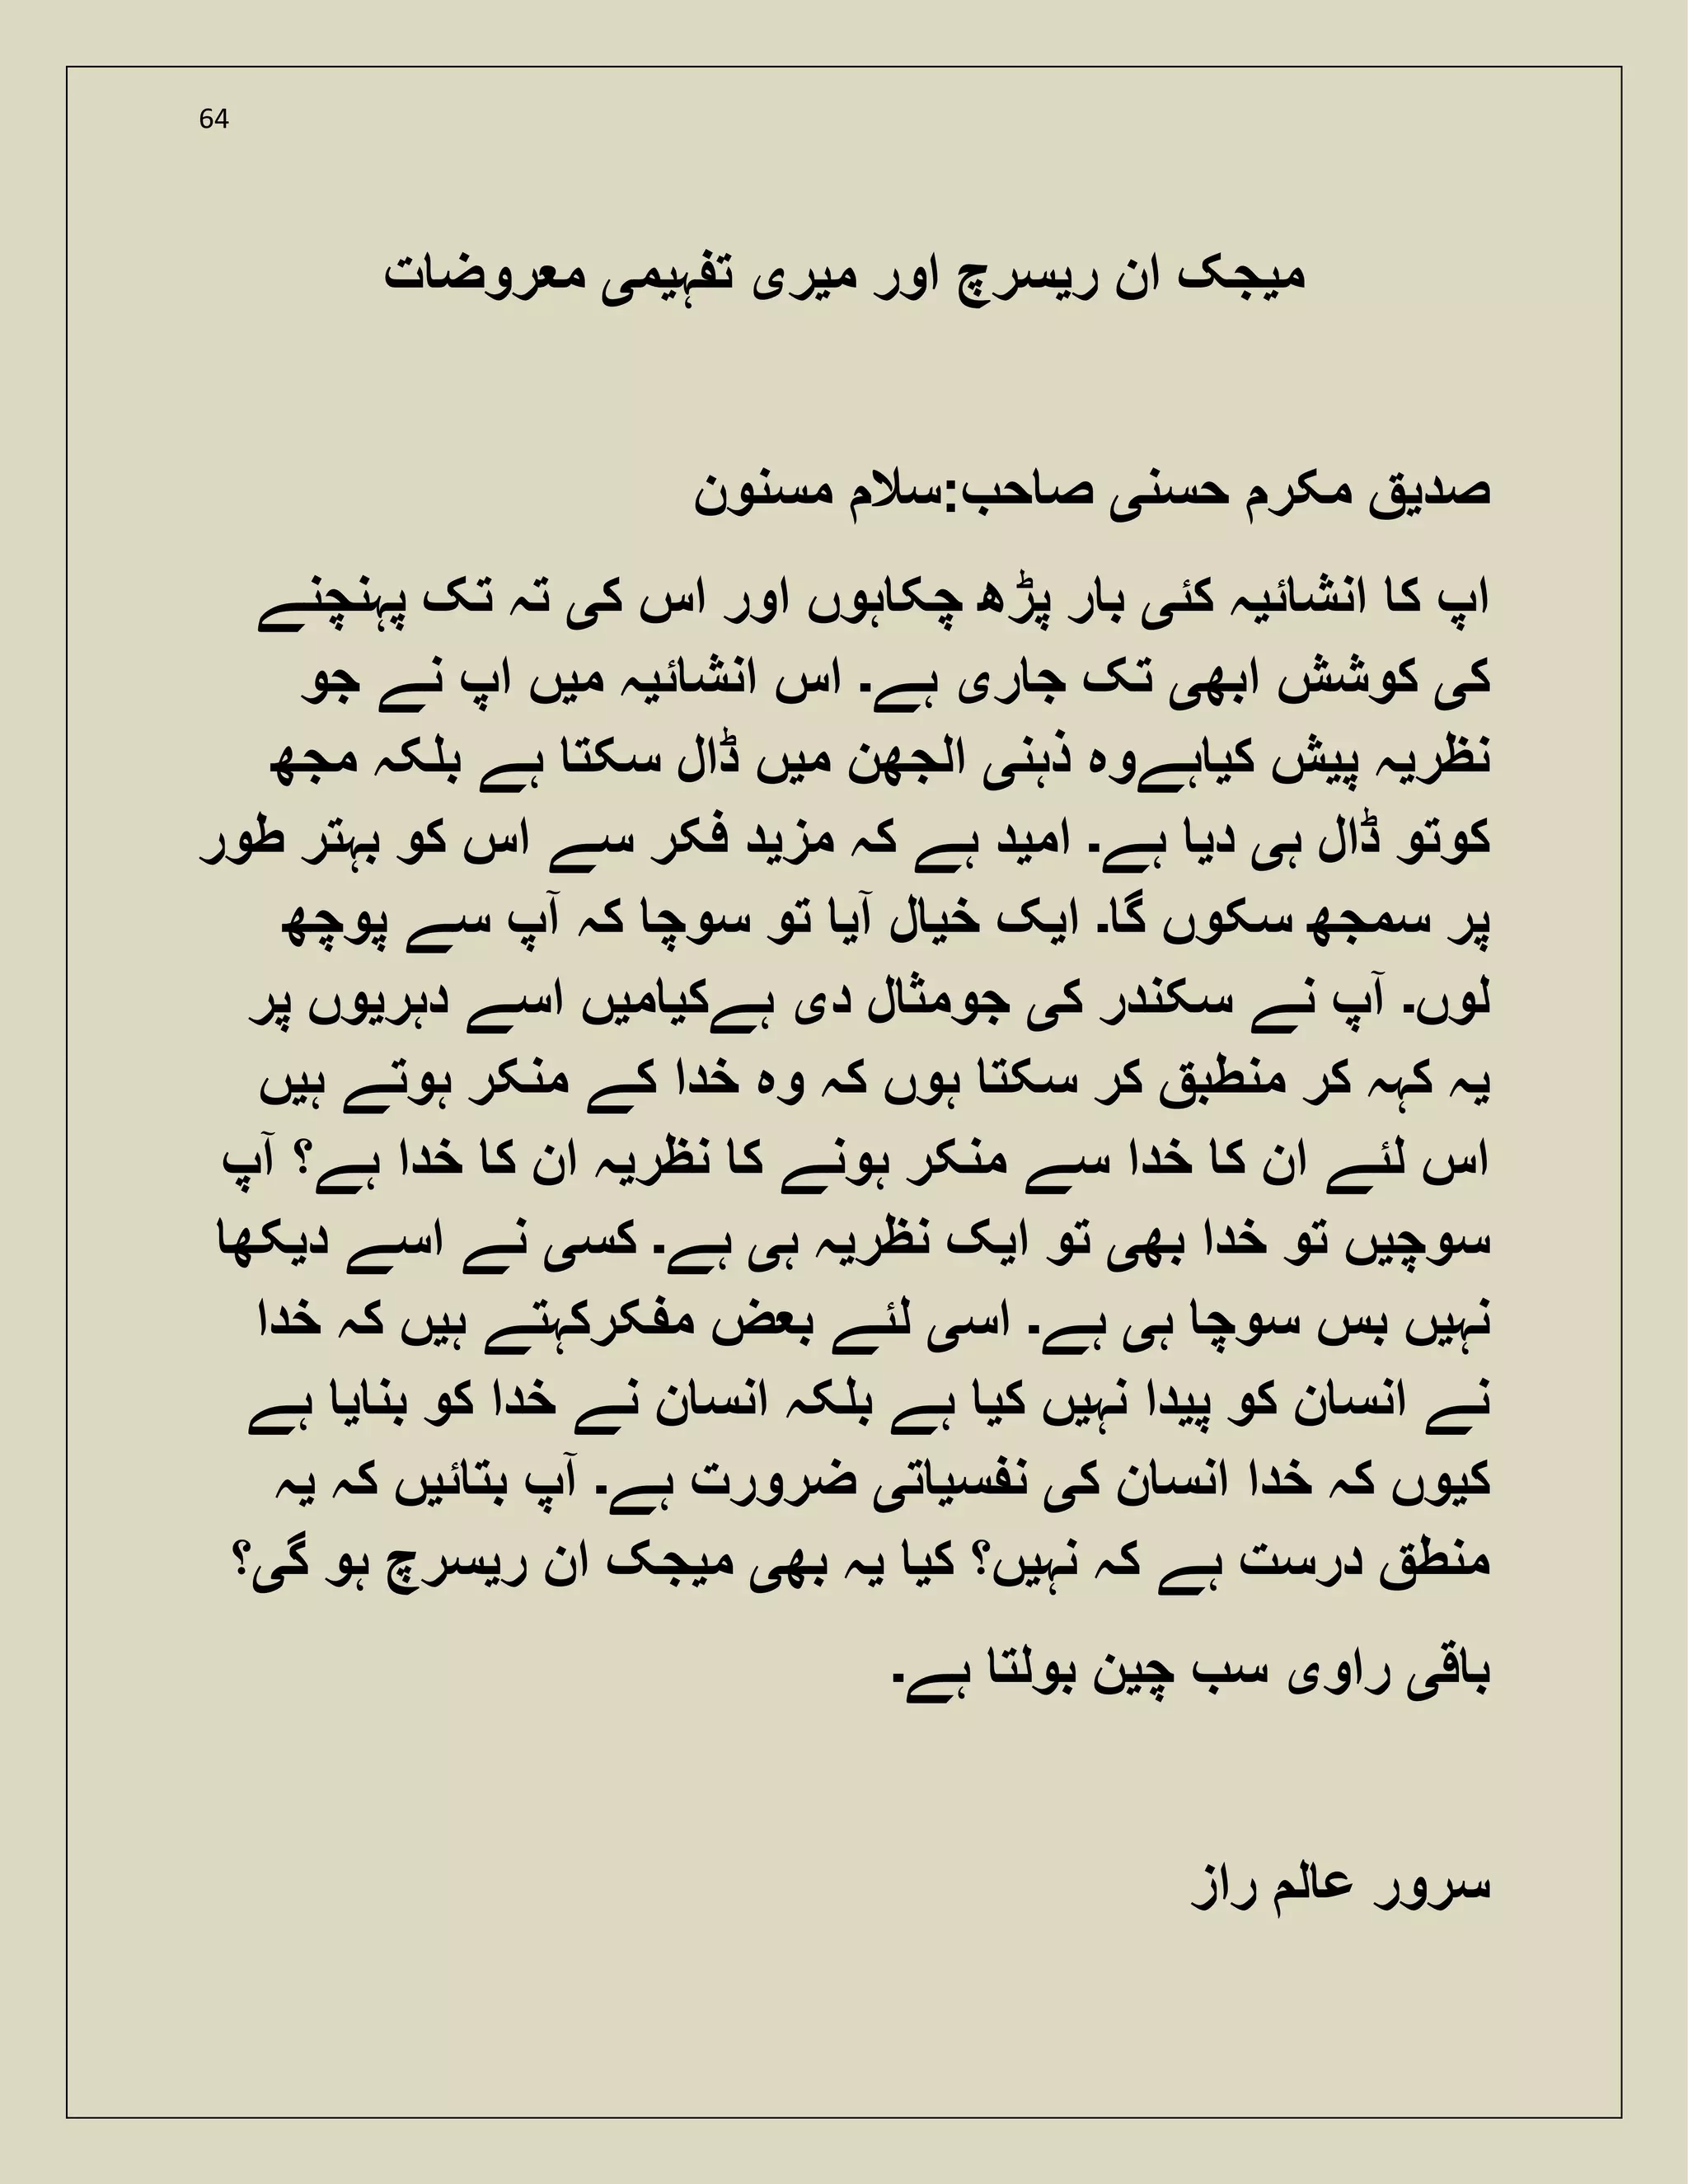 64
میجک ان ریسرچ اور میری تفہیمی معروضات
صدیق مکرم حسنی صاحب:سلام مسنون
اپ کا انشائیہ کئی بار پڑھ چکاہوں اور اس کی تہ تک پہنچنے
کی کوشش ابھی تک جاری ہے. اس انشائیہ میں اپ نے جو
نظریہ پیش کیاہےوہ ذہنی الجھن میں ڈال سکتا ہے بلکہ مجھ
کوتو ڈال ہی دیا ہے. امید ہے کہ مزید فکر سے اس کو بہتر طور
پر سمجھ سکوں گا. ایک خیال آیا تو سوچا کہ آپ سے پوچھ
لوں. آپ نے سکندر کی جومثال دی ہےکیامیں اسے دہریوں پر
یہ کہہ کر منطبق کر سکتا ہوں کہ وہ خدا کے منکر ہوتے ہیں
اس لئے ان کا خدا سے منکر ہونے کا نظریہ ان کا خدا ہے؟ آپ
سوچیں تو خدا بھی تو ایک نظریہ ہی ہے. کسی نے اسے دیکھا
نہیں بس سوچا ہی ہے. اسی لئے بعض مفکرکہتے ہیں کہ خدا
نے انسان کو پیدا نہیں کیا ہے بلکہ انسان نے خدا کو بنایا ہے
کیوں کہ خدا انسان کی نفسیاتی ضرورت ہے. آپ بتائیں کہ یہ
منطق درست ہے کہ نہیں؟ کیا یہ بھی میجک ان ریسرچ ہو گی؟
باقی راوی سب چین بولتا ہے.
سرور عالم راز